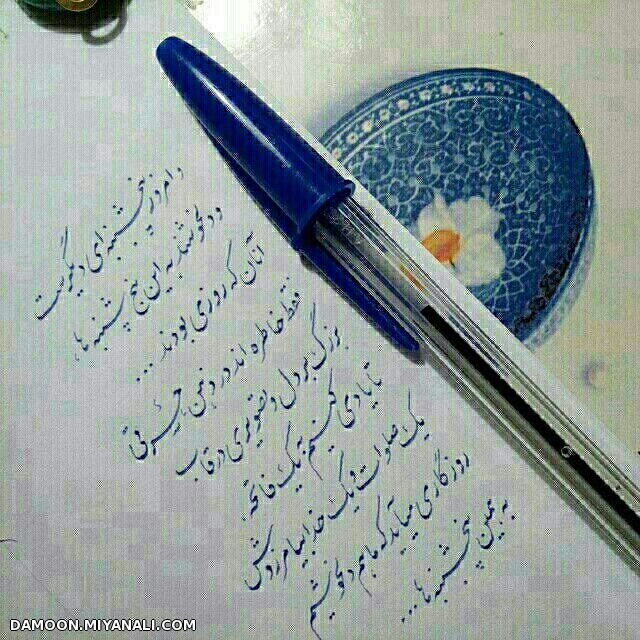 و امروز پنجشنبه‌ای دیگرست
و دلخوشند به این پنج شنبه ها،
آنان که روزی بودند ...
فقط خاطره اند در ذهن، حیٔرتی
بزرگ بر دل و تصویری در قاب
تا یادی کنیم به یک فاتحه،
یک صلوات و یک خدا بیامرزدش
روزگاری می‌آید که ما هم دلخوشیم
به همین پنجشنبه ها ...
DAMOON.MIYANALI.COM